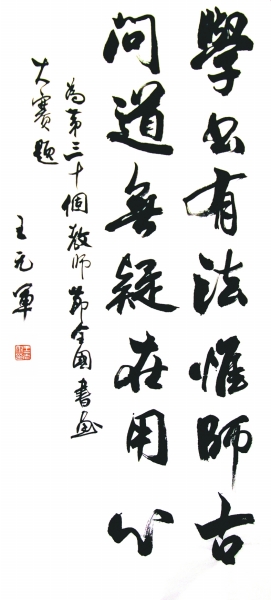 學书有法惟師古
問道無疑在用心
為第三十個教師節全國書画
大賽题
王元軍